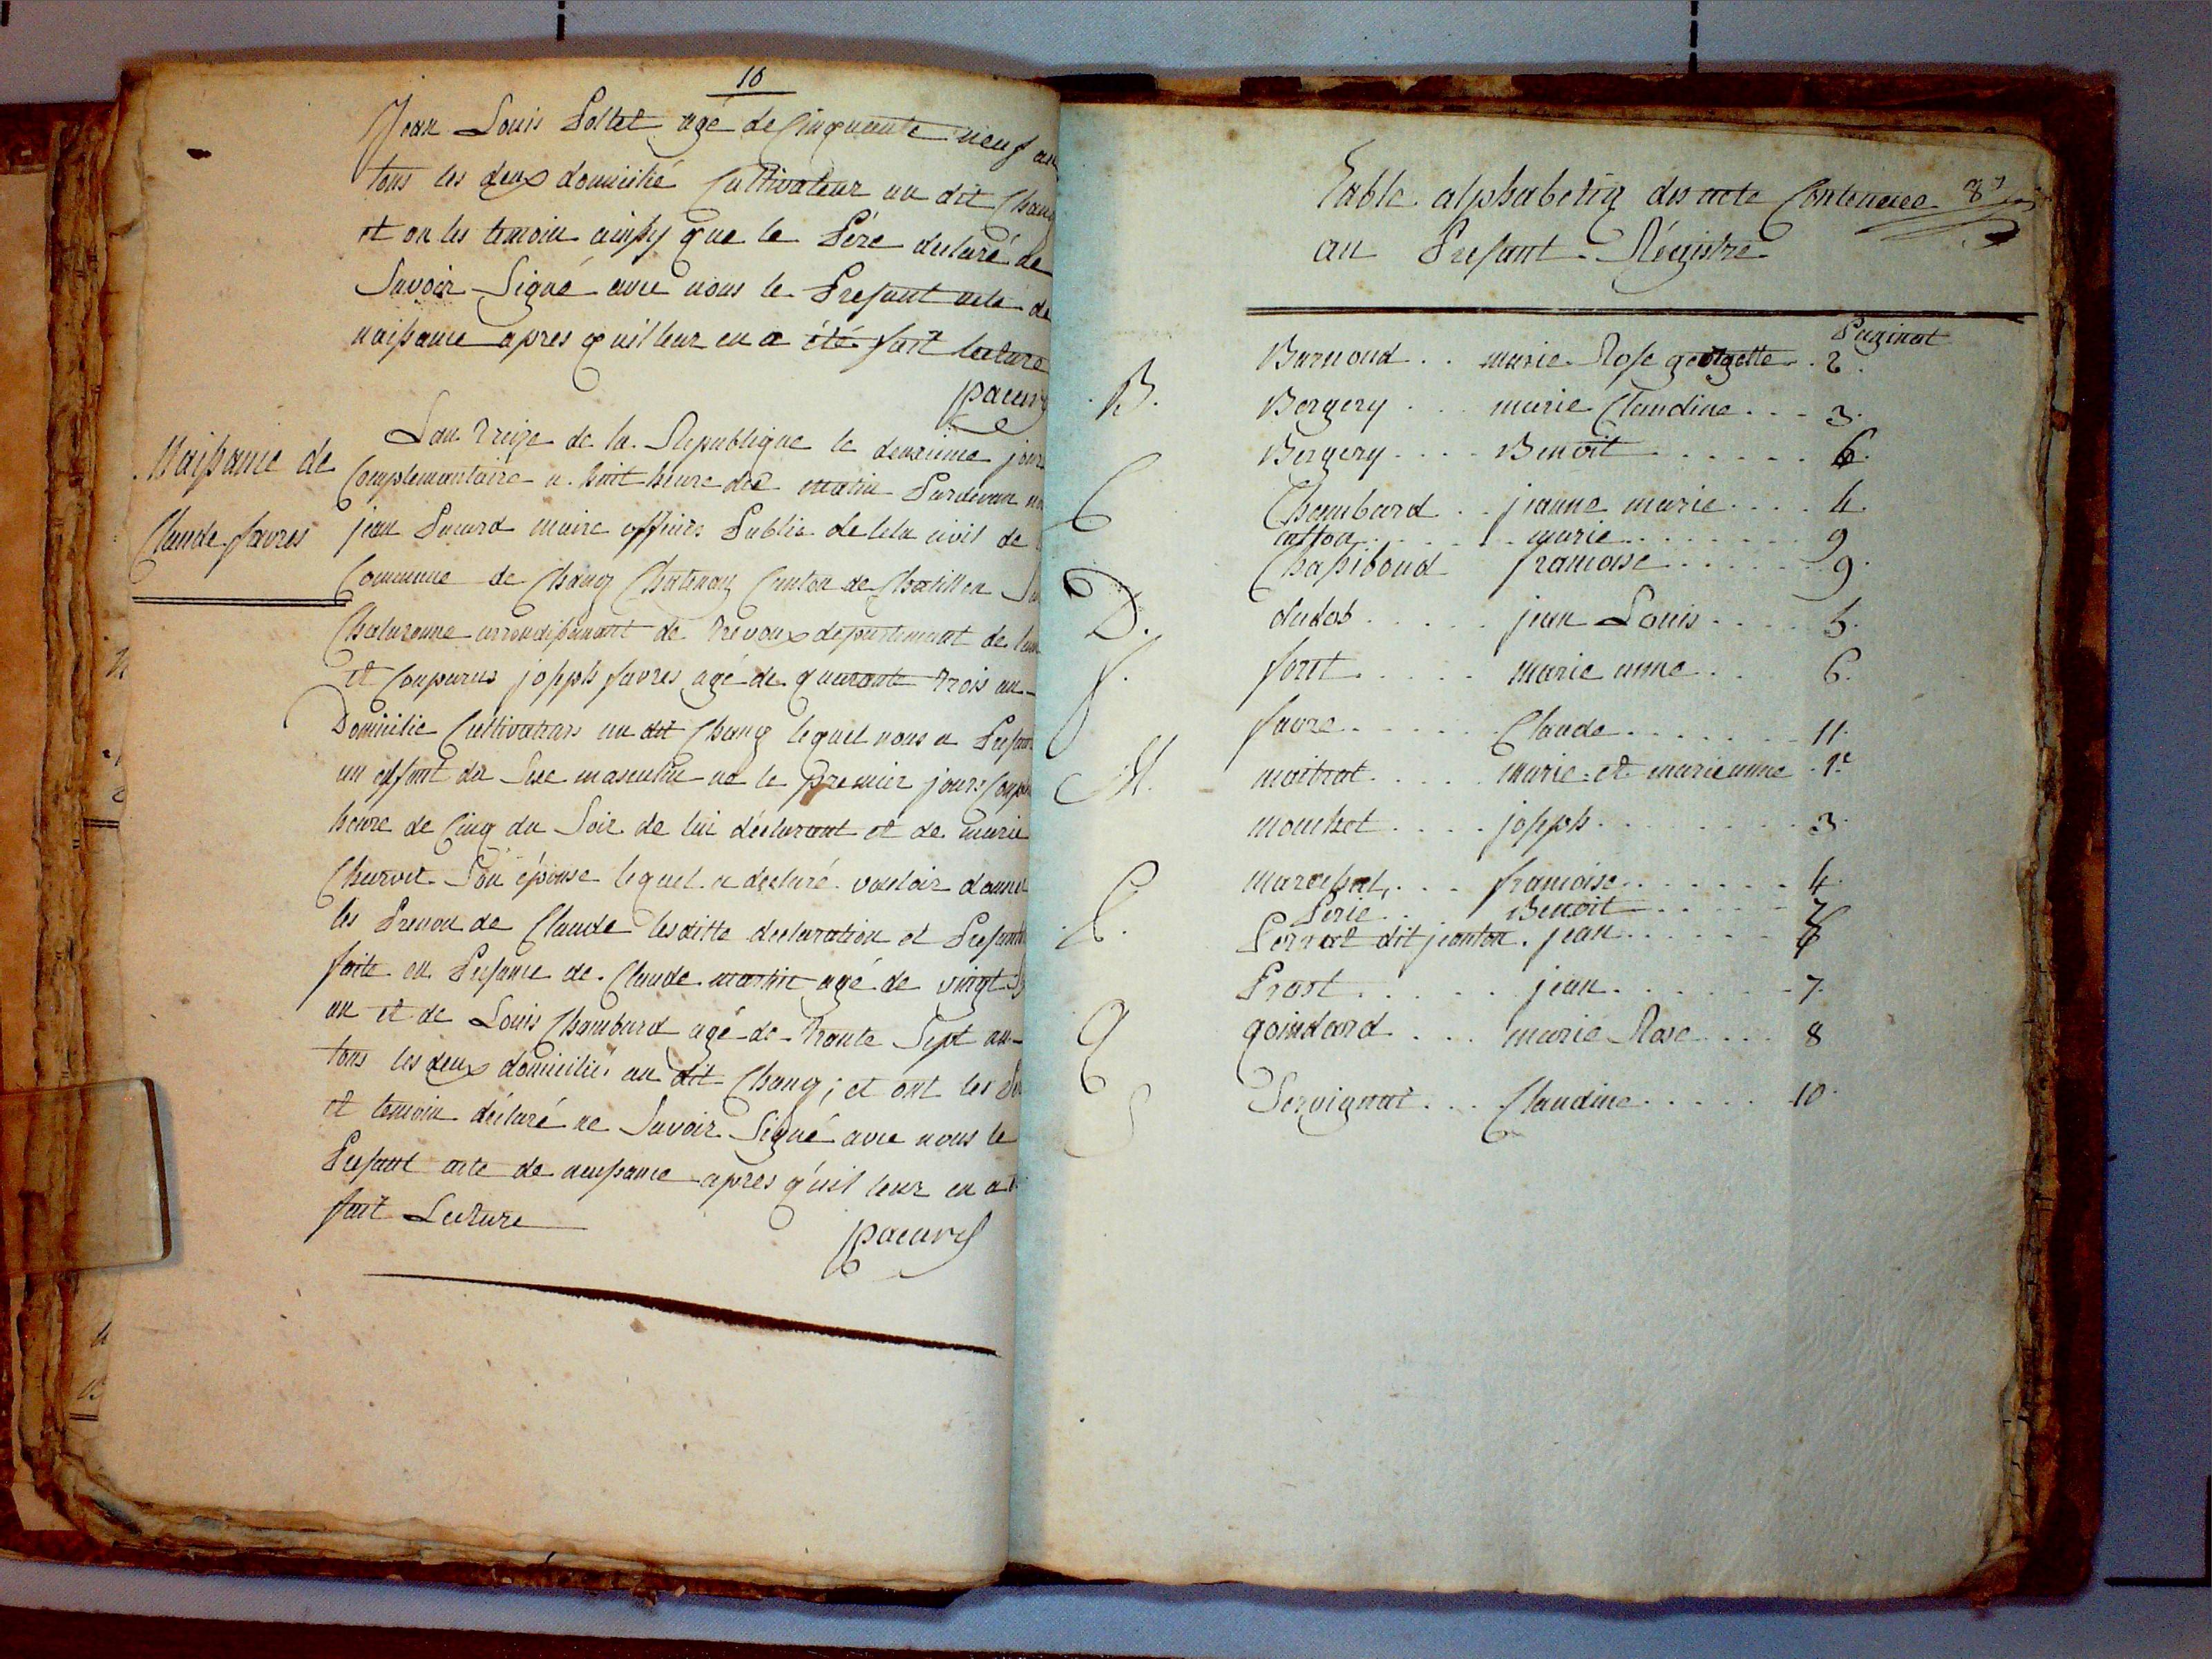 10
Jean Louis Poltet agé de Cinquante neuf an
tous les deux domicilié Cultivateur au dit Chang
et on les temoin ainsy que le Pére declaré ne
Savoir Signé avec nous le Presant acte de
naissance apres quil leur en a été fait lecture
pacard
Naissance de
Claude favres
Lan treize de la Republique le deuxieme jour
Complemantaire a huit heure du matin Pardevan
jean Pacard maire officier Public de letat civil de
Commune de Chang Chatenay Canton de Chatillon Sur
Chalaronne arrondissemant de trevoux departement de lain
et Comparus joseph favres agé de quarante trois an
Domicilie Cultivateur au dit Chang lequel nous a Presant
un enfant du Sexe masculin né le premier jours Comp
heure de Cinq du Soir de lui déclarant et de marie
Charvet Son épouse lequel a déclaré vouloir donner
les Prenon de Claude lesditte declaration et Presant
faite en Presance de Claude martin agé de vingt
an et de Louis Chambard agé de trante Sept an
tous les deux domicilié au dit Chang; et ont les Per
et temoin déclaré ne Savoir Signé avec nous le
Presant acte de naissance apres quil leur en a
fait Lecture
pacard
Table alphabetiq des acte Contenue
au Presant Régistre
Paginat
Burnond . . marie Rose georgette . 2.
B. Bergery . . . marie Claudine . . . 3.
Bergery . . . . Benoit . . . . . . 6.
C Chambard . . jeanne marie . . . . 4.
catton . . . . . marie . . . . . . . 9
Chapiboud françoise . . . . . . 9.
D. dudob . . . . . jean Louis . . . . 5.
f. foret . . . . . marie anne . . . 6.
favre . . . . . . Claude . . . . . . . 11.
M. maitrat . . . . marie et marieanne . 1e
mouchet . . . . joseph . . . . . . . . 3.
marechal . . . . françoise . . . . . . . 4.
P. Perie . . . Benoit . . . . . 7
Perrat dit jeanton . jean . . . . . .
Prost . . . . . jean . . . . . . . 7.
Q qoindard . . . marie Rose . . . . 8
S Servignat . . . Claudine . . . . . 10.